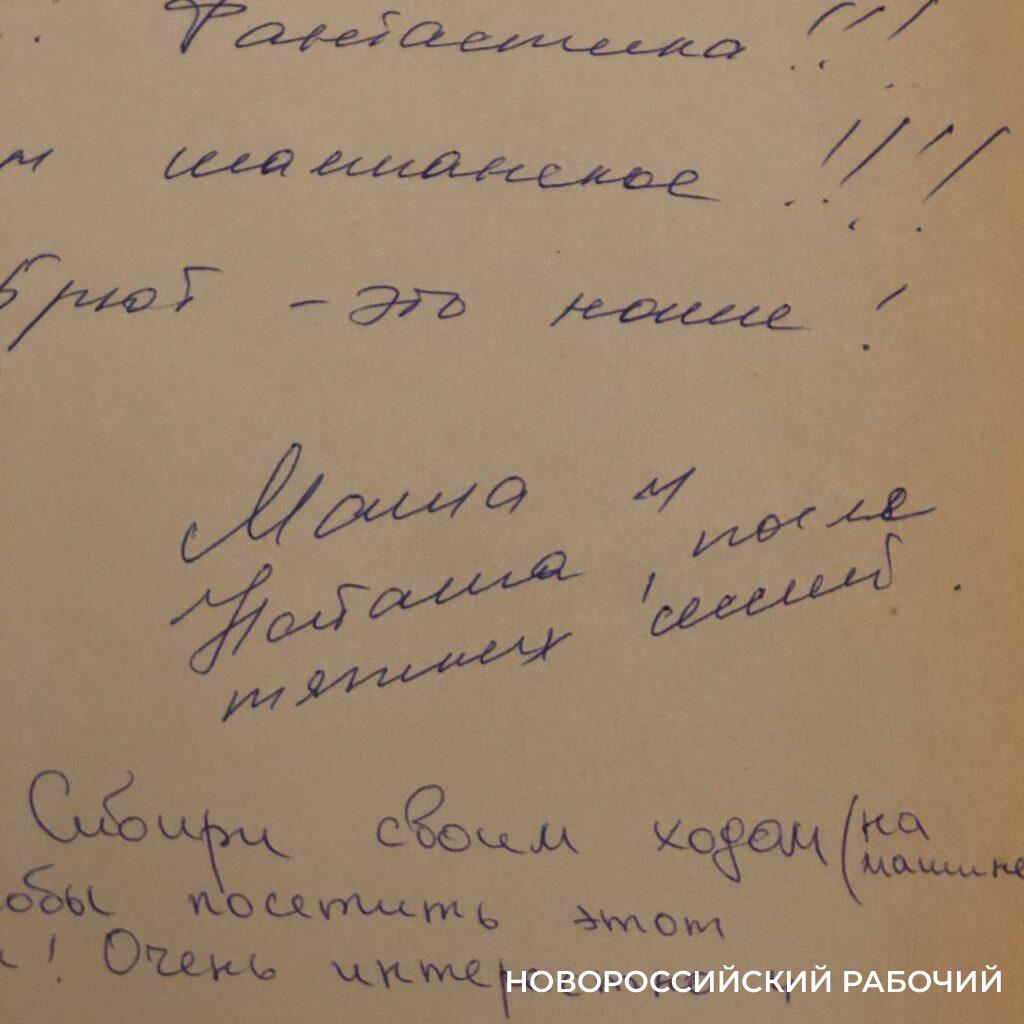 Фантастика!!!
и шампанское!!!!
Брют - это наше!
Маша и
Наташа, после
тяжких
Сибири своим ходом (на
машине
обы посетить этот
! Очень интересно и
НОВОРОССИЙСКИЙ РАБОЧИЙ